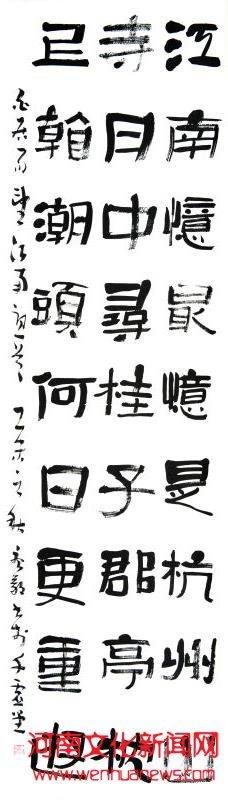 江南憶最憶是杭州山
寺月中尋桂子郡亭枕
上看潮頭何日更重遊
白居易望江南
河南文化新闻网
www.wenhuanews.com